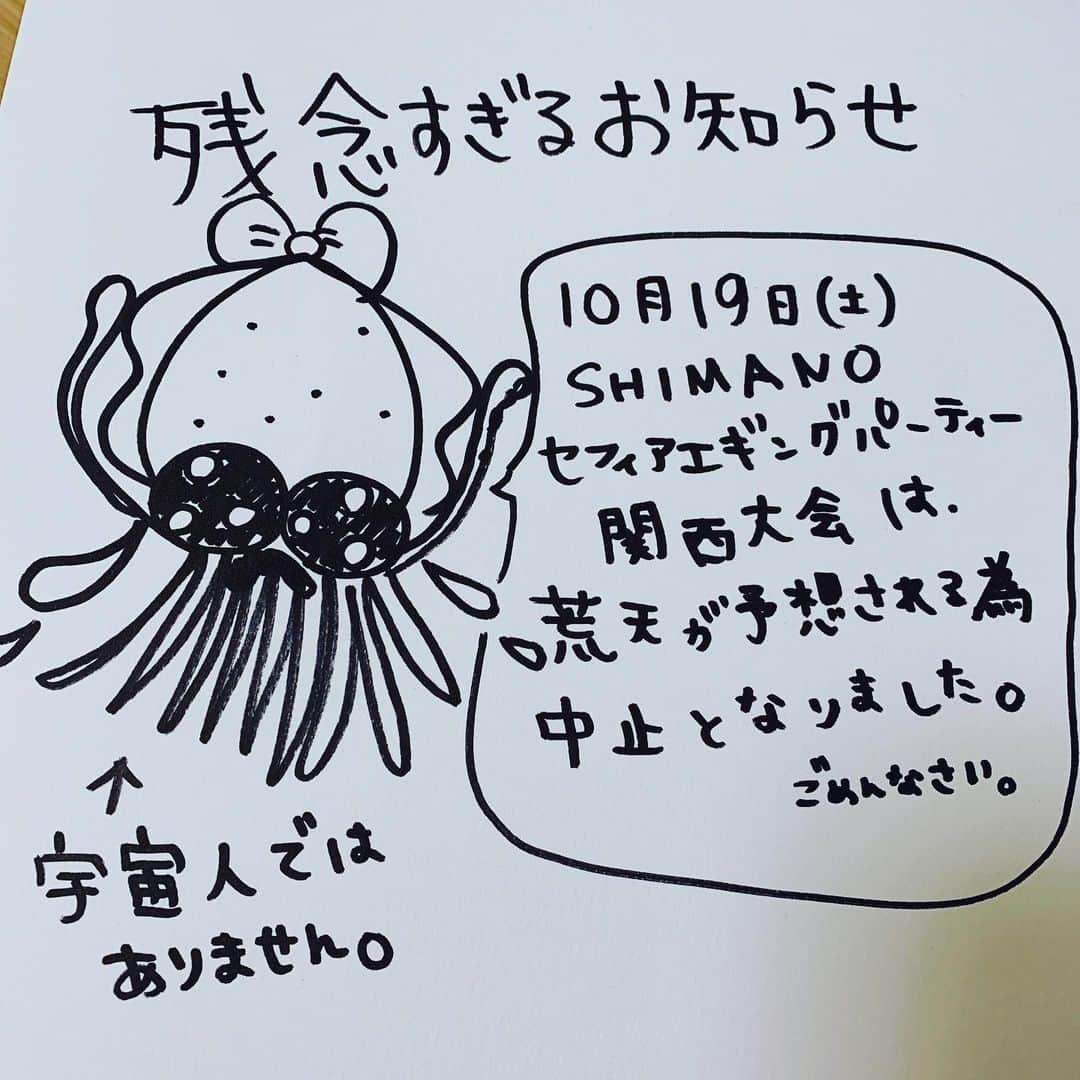 残念すぎるお知らせ
10月19日(土)
SHIMANO
セフィアエギングパーティー
関西大会は、
荒天が予想される為
中止となりました。
ごめんなさい。
↑
宇宙人では
ありません。